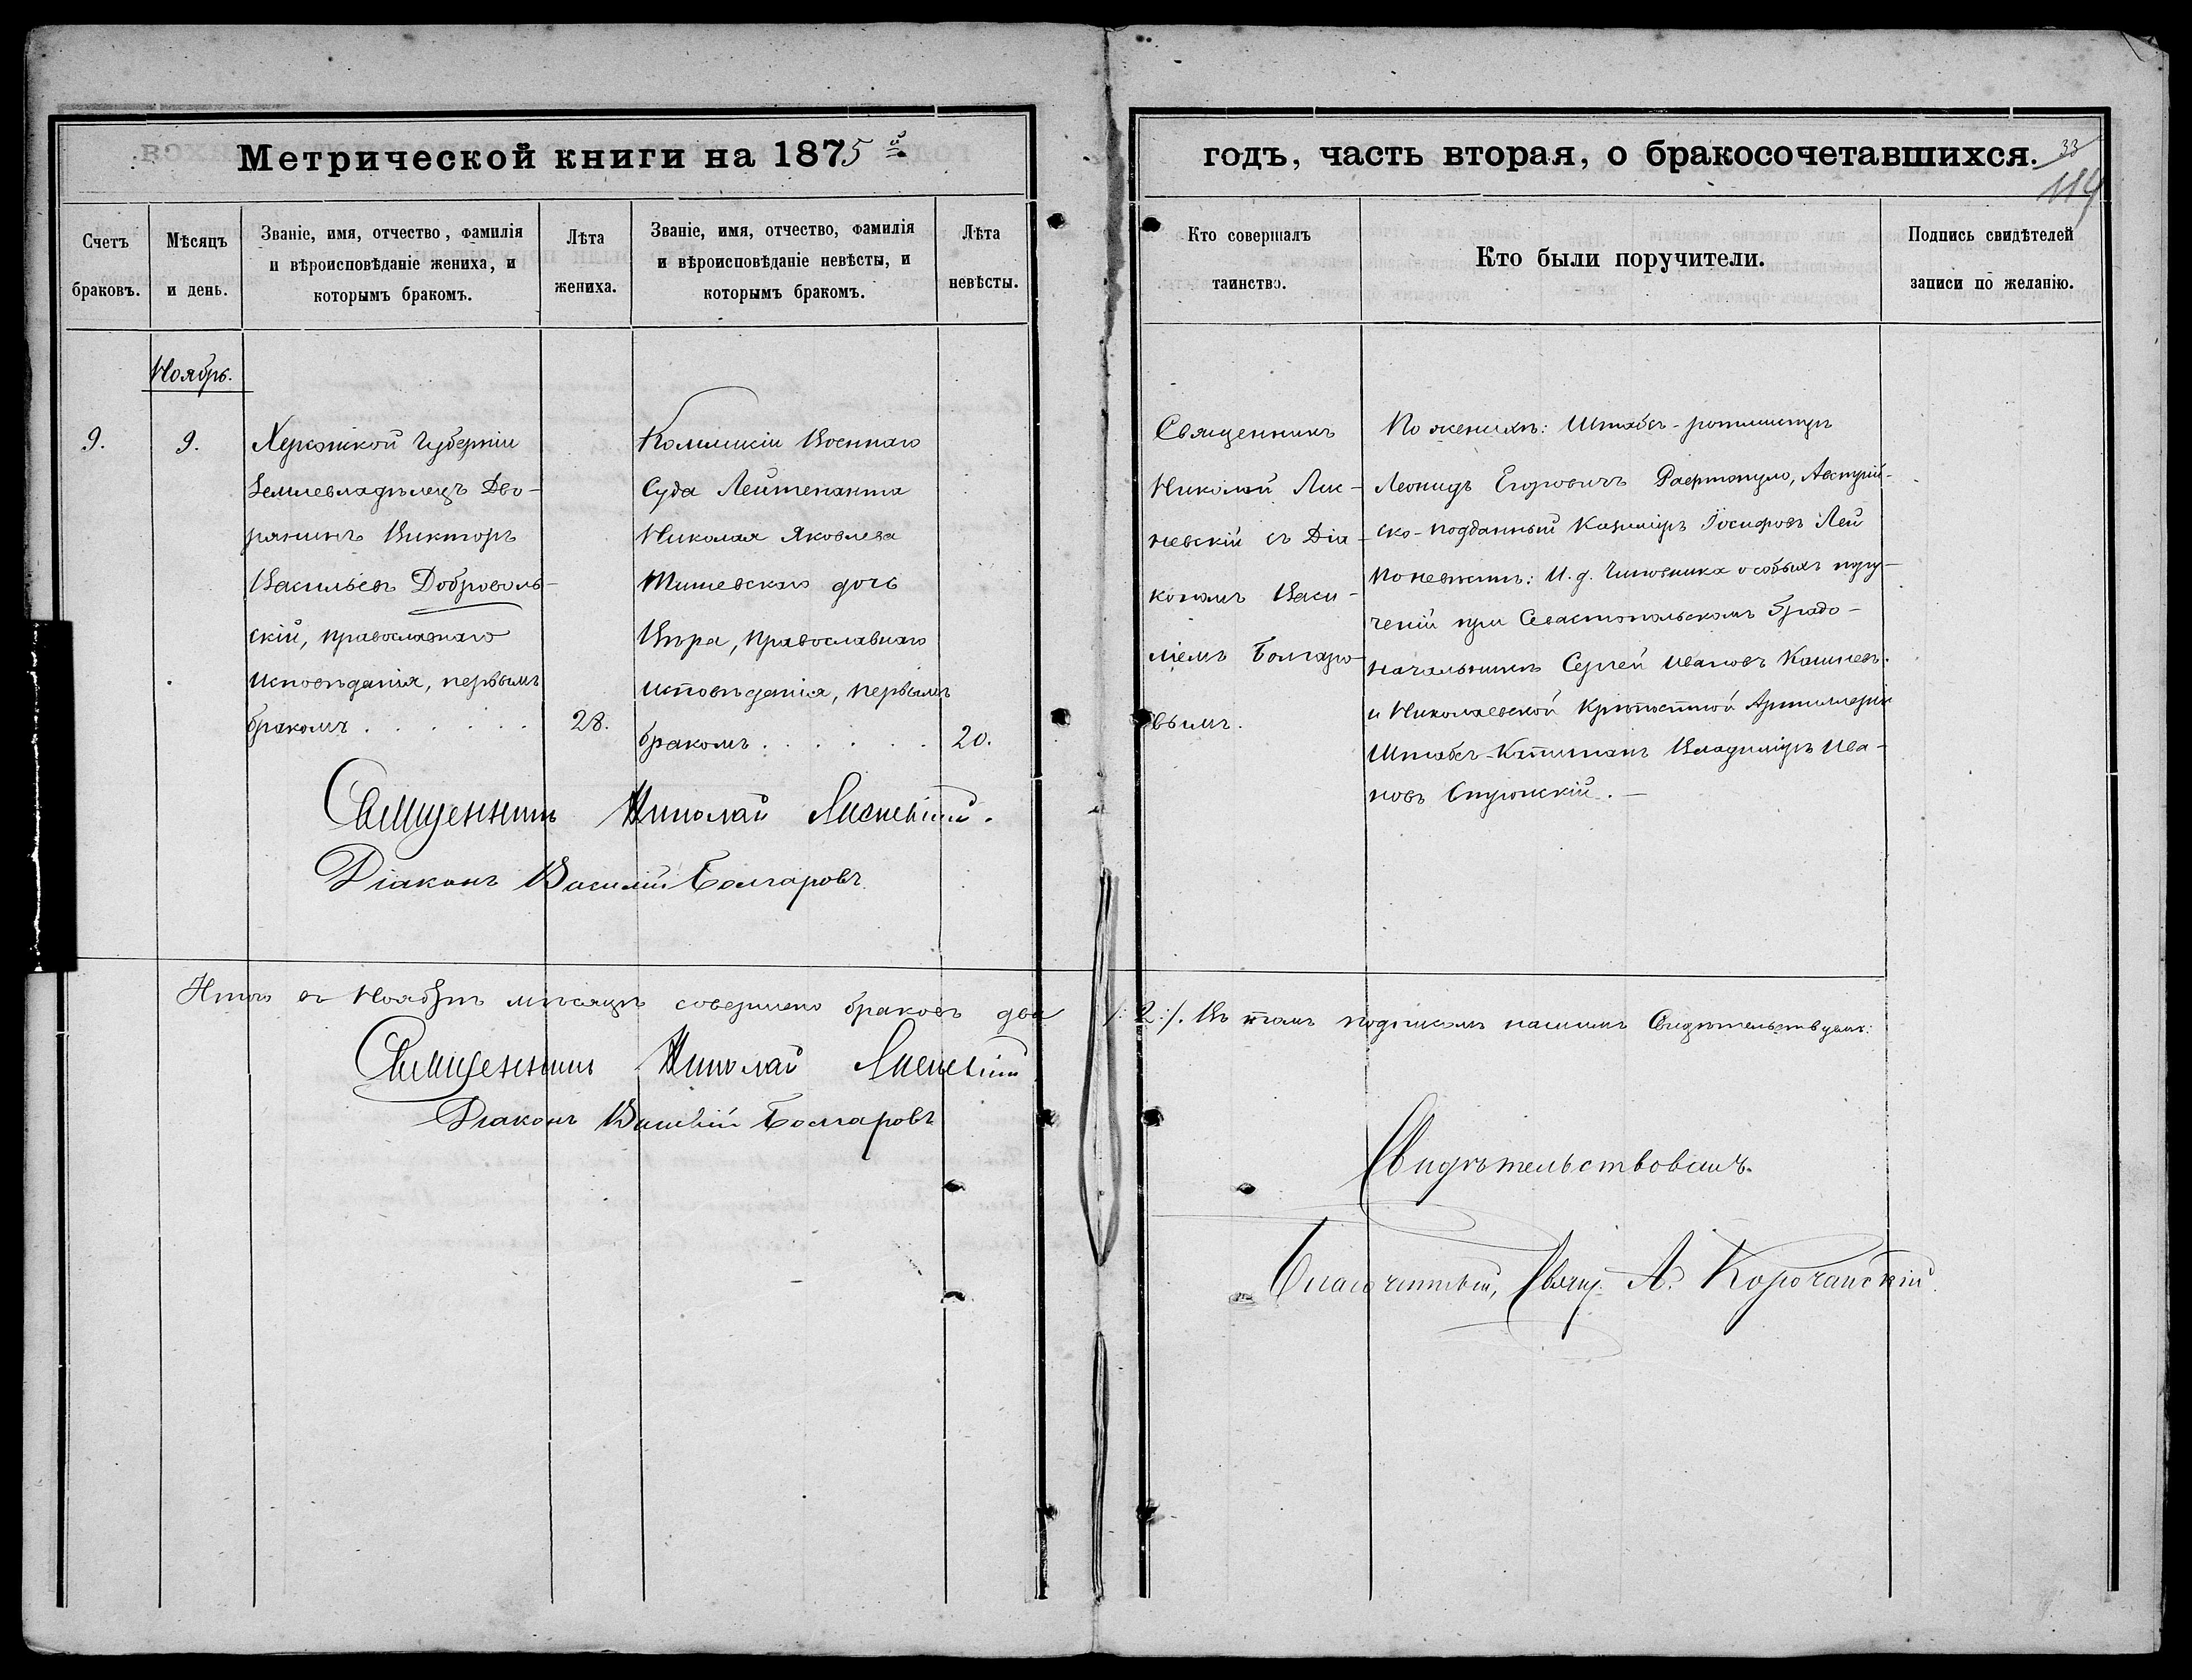 Метрической книги на 1875й
годъ, часть вторая, о бракосочетавшихся.
33
119
Счетъ браковъ.
Мѣсяцъ и день.
Званіе, имя, отчество, фамилія
и вѣроисповѣданіе жениха, и
которымъ бракомъ.
Лѣта жениха.
Званіе, имя, отчество, фамилія
и вѣроисповѣданіе невѣсты, и
которымъ бракомъ.
Лѣта невѣсты.
Кто совершалъ
таинство.
Кто были поручители.
Подпись свидѣтелей
записи по желанію.
Ноябрь.
9.
9.
Херсонской Губерніи
Землевладѣлецъ Дво-
рянинъ Викторъ
Васильевъ Доброволь-
скій, православнаго
исповѣданія, первымъ
бракомъ . . . . . .
28.
Коммисіи Военнаго
Суда Лейтенанта
Николая Яковлева
дочь
Вѣра, Православнаго
исповѣданія, первымъ
бракомъ . . . . . .
20.
Священникъ
Николай Лис-
невскій съ Діа-
кономъ Васи-
ліемъ Болгаро-
вымъ.
По женихѣ: Штабсъ-ротмистръ
Леонидъ Егоровичъ Австрій-
ско-подданный Казиміръ Іосифовъ Лей
По невѣстѣ: И. д. Чиновника особыхъ пору-
ченій при Севастопольскомъ Градо-
начальникѣ Сергѣй Ивановъ
и Николаевской Крѣпостной Артиллеріи
Штабсъ-Капитанъ Владиміръ Ива-
новъ
Священникъ Николай Лисневскій.
Діаконъ Василій Болгаровъ
Итого въ Ноябрѣ мѣсяцѣ совершено браковъ два /:2:/. Въ томъ подписомъ нашимъ Свидѣтельствуемъ:
Священникъ Николай Лисневскій
Діаконъ Василій Болгаровъ
Свидѣтельствовалъ
Благочинный, Свящ. А. Корочанскій